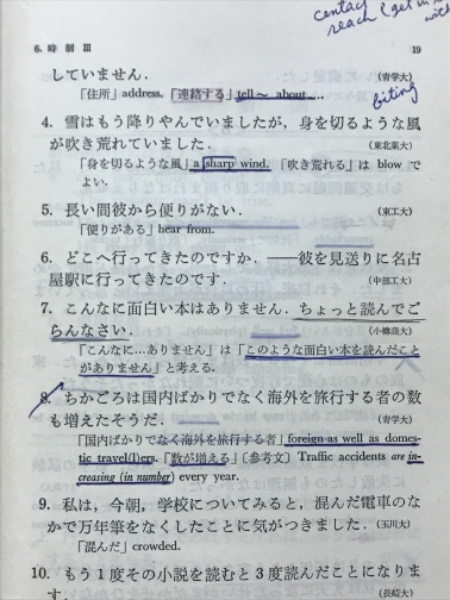 contact
reach (get in
with
6. 時 制 III 19
していません. (青学大)
「住所」address. 「連絡する」tell～ about....
biting
4. 雪はもう降りやんでいましたが, 身を切るような風
が吹き荒れていました. (東北薬大)
「身を切るような風」a sharp wind. 「吹き荒れる」は blow で
よい.
5. 長い間彼から便りがない. (東工大)
「便りがある」hear from.
6. どこへ行ってきたのですか. ——彼を見送りに名古
屋駅に行ってきたのです. (中部工大)
7. こんなに面白い本はありません. ちょっと読んでご
らんなさい. (小樽商大)
「こんなに…ありません」は「このような面白い本を読んだこと
がありません」と考える.
8. ちかごろは国内ばかりでなく海外を旅行する者の数
も増えたそうだ. (青学大)
「国内ばかりでなく海外を旅行する者」foreign as well as domes-
tic travel(l)ers. 「数が増える」〔参考文〕Traffic accidents are in-
creasing (in number) every year.
9. 私は, 今朝, 学校についてみると, 混んだ電車のな
かで万年筆をなくしたことに気がつきました. (玉川大)
「混んだ」crowded.
10. もう1度その小説を読むと3度読んだことになりま
す. (長崎大)